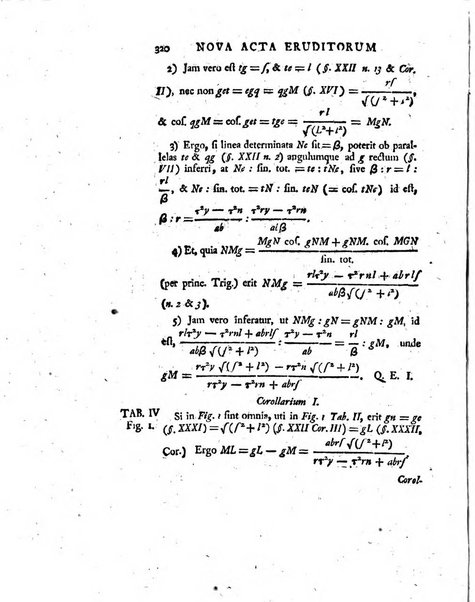 320 NOVA ACTA ERUDITORUM
2) Jam vero est tg = ſ, & te = l (§. XXII n. 13 & Cor.
II), nec non get = egq = qgM (§. XVI) = rſ / √(ſ² + l²),
& coſ. qgM = coſ. get = tge = rl / √(l² + ſ²) = MgN.
3) Ergo, ſi linea determinata Ne ſit = ß, poterit ob paral-
lelas te & qg (§. XXII n. 2) angulumque ad g rectum (§.
VII) inferri, at Ne : ſin. tot. = te : tNe, ſive ß : r = l :
rl / ß, & Ne : ſin. tot. = tN : ſin. teN (= coſ. tNe) id eſt,
ß : r = τ²y − τ²n / ab : rτ²y − rτ²n / abß.
4) Et, quia NMg = MgN coſ. gNM + gNM. coſ. MGN / ſin. tot.
(per princ. Trig.) erit NMg = rlτ²y − τ²rnl + abrlſ / abß√(ſ² + l²)
(n. 2 & 3).
5) Jam vero inferatur, ut NMg : gN = gNM : gM, id
eſt, rlτ²y − τ²rnl + abrlſ / abß√(ſ² + l²) : τ²y − τ²n / ab = rl / ß : gM, unde
gM = rτ²y √(ſ² + l²) − rτ²n √(ſ² + l²) / rτ²y − τ²rn + abrſ. Q. E. I.
Corollarium I.
TAB. IV Si in Fig. 1 ſint omnia, uti in Fig. 1 Tab. II, erit gn = ge
Fig. 1. (§. XXXI) = √(ſ² + l²) (§. XXII Cor. III) = gL (§. XXXII,
Cor.) Ergo ML = gL − gM = abrſ √(ſ² + l²) / rτ²y − τ²rn + abrſ
Corol-